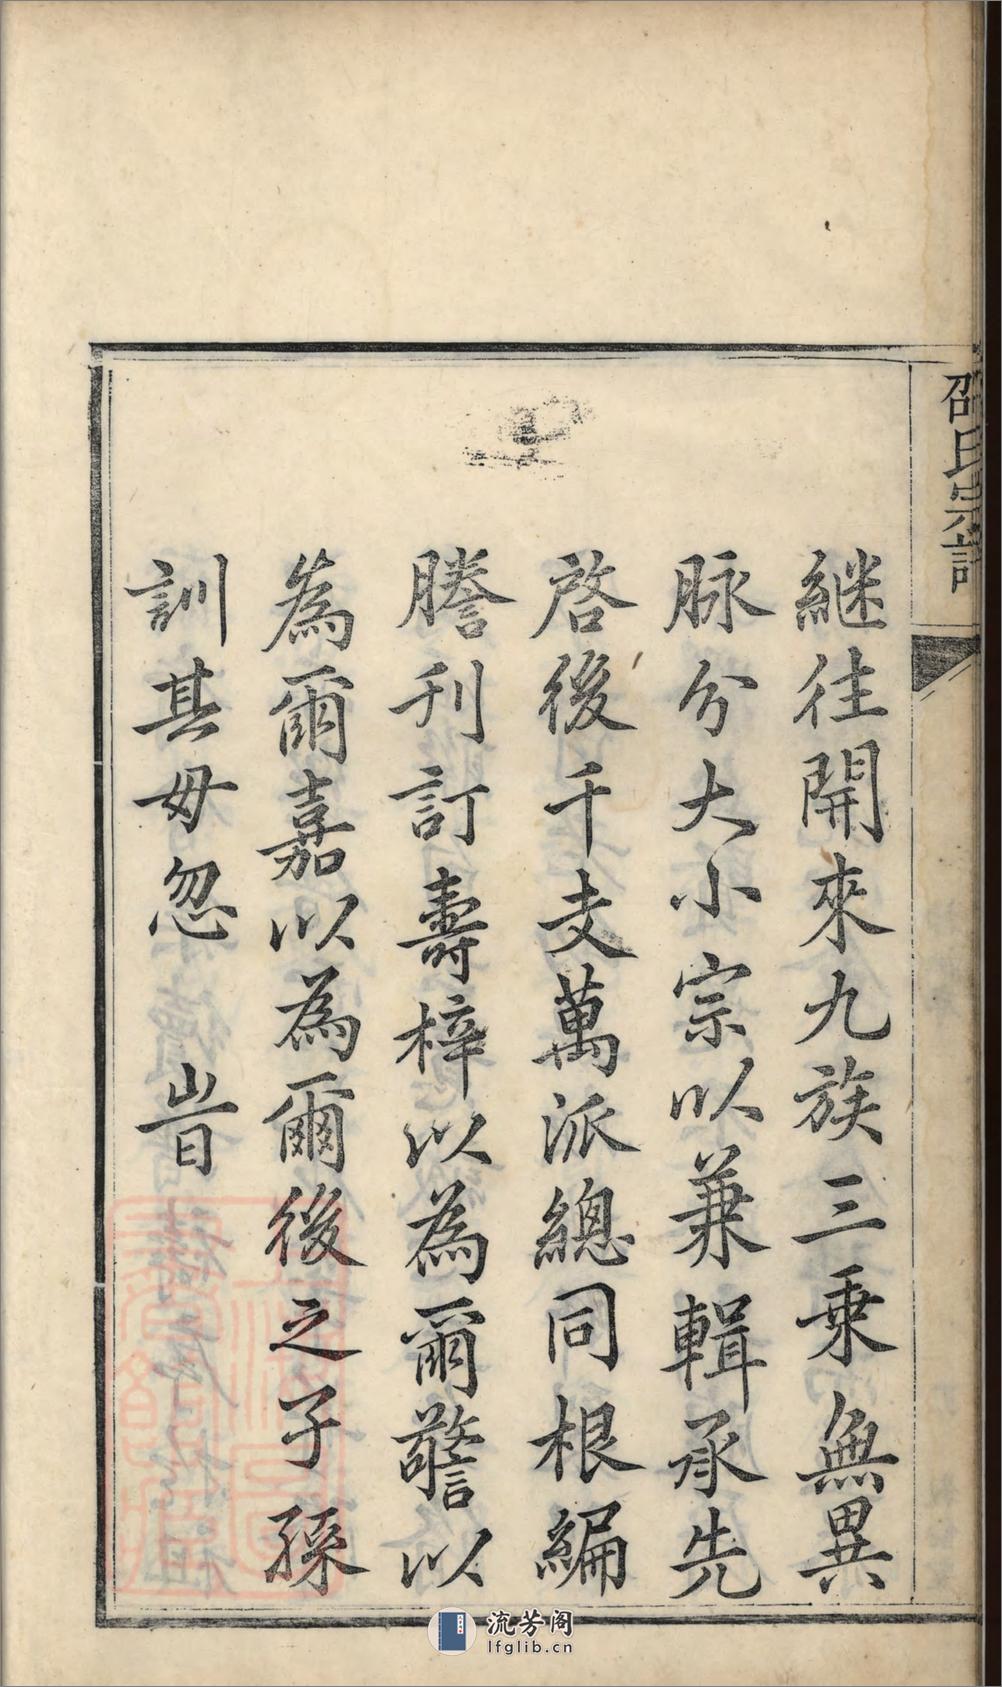 邵氏宗譜
継往開來九族三乗無異
脉分大小宗以兼輯承先
啓後千支萬派總同根編
謄刊訂壽梓以為爾警以
為爾嘉以為爾後之子孫
訓其毋忽 旹
流芳阁
lfglib.cn